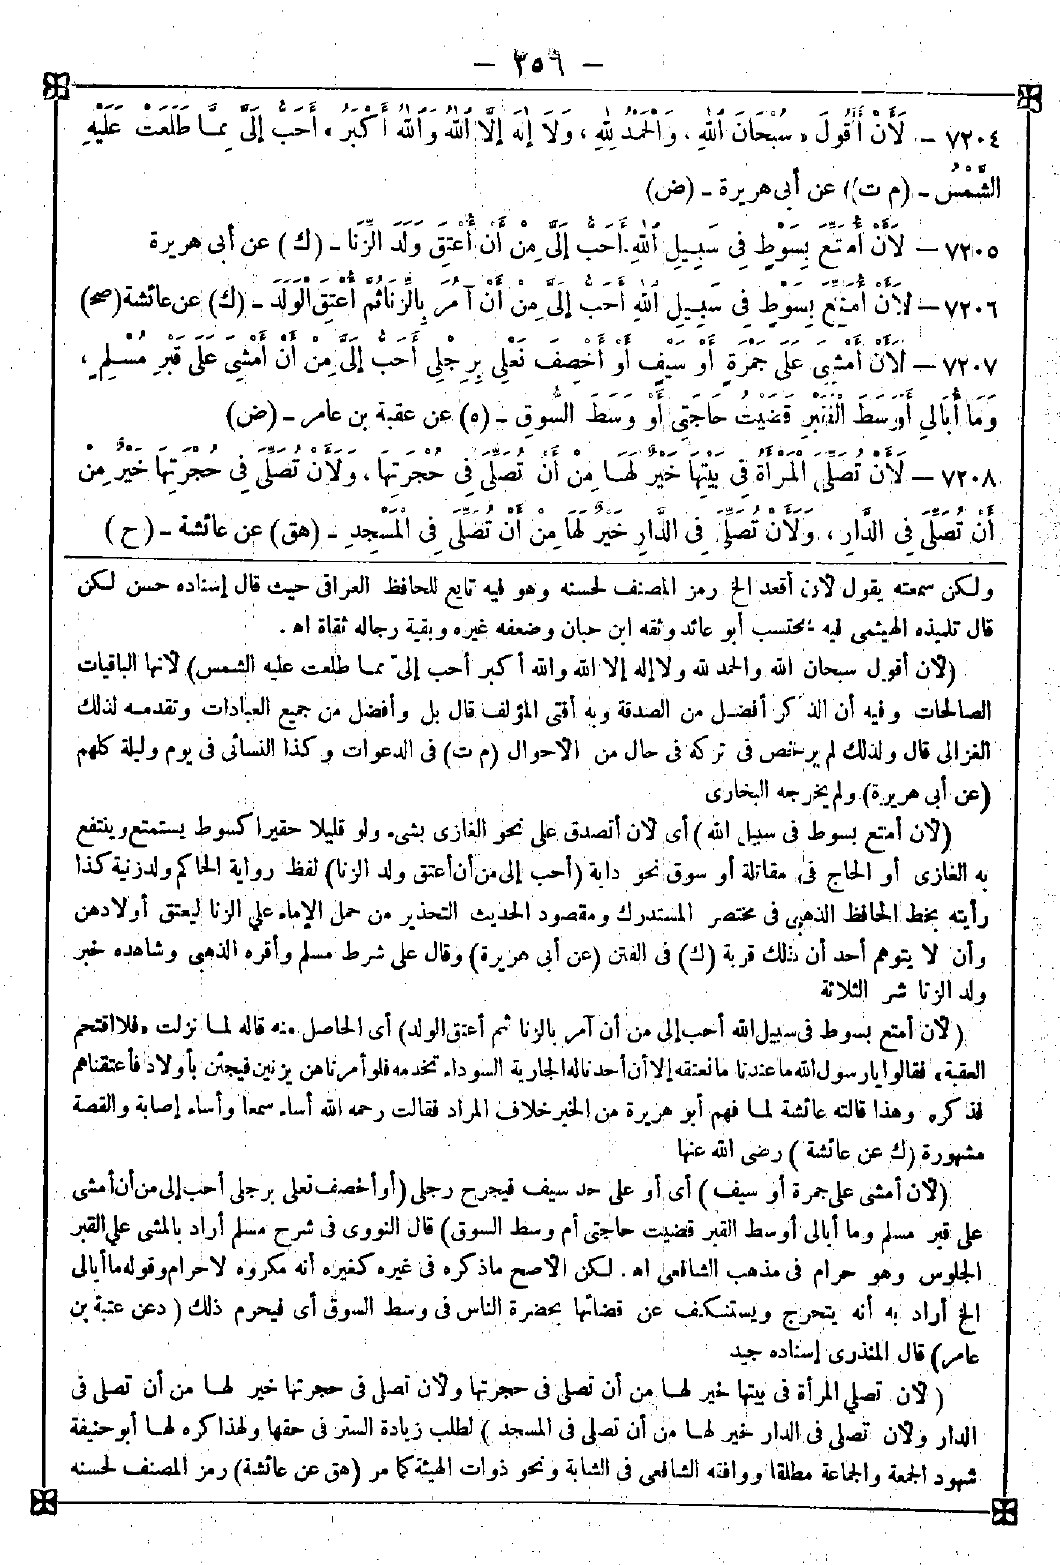 - ٢٥٦ -
٧٢٠٤ - لَأَنْ أَقُولَ « سُبْحَانَ اللهِ ، وَالْحَمْدُ لِلهِ ، وَلَا إِلهَ إِلَّا اللهُ وَاللهُ أَكْبَرُ » أَحَبُّ إِلَىَّ مِمَّا طَلَعَتْ عَلَيْهِ
الشَّمْسُ - (م ت) عن أبى هريرة - (ض)
٧٢٠٥ - لَأَنْ أُمَتِّعَ بِسَوْطٍ فِى سَبِيلِ اللهِ أَحَبُّ إِلَىَّ مِنْ أَنْ أُعْتِقَ وَلَدَ الزِّنَا - (ك) عن أبى هريرة
٧٢٠٦ - لَأَنْ أُمَتِّعَ بِسَوْطٍ فِى سَبِيلِ اللهِ أَحَبُّ إِلَىَّ مِنْ أَنْ آمُرَ بِالزِّنَا ثُمَّ أُعْتِقَ الْوَلَدَ - (ك) عن عائشة (صح)
٧٢٠٧ - لَأَنْ أَمْشِىَ عَلَى جَمْرَةٍ أَوْ سَيْفٍ أَوْ أَخْصِفَ نَعْلِى بِرِجْلِى أَحَبُّ إِلَىَّ مِنْ أَنْ أَمْشِىَ عَلَى قَبْرِ مُسْلِمٍ ،
وَمَا أُبَالِى أَوَسَطَ الْقَبْرِ قَضَيْتُ حَاجَتِى أَوْ وَسَطَ السُّوقِ - (ه) عن عقبة بن عامر - (ض)
٧٢٠٨ - لَأَنْ تُصَلِّىَ الْمَرْأَةُ فِى بَيْتِهَا خَيْرٌ لَهَا مِنْ أَنْ تُصَلِّىَ فِى حُجْرَتِهَا ، وَلَأَنْ تُصَلِّىَ فِى حُجْرَتِهَا خَيْرٌ مِنْ
أَنْ تُصَلِّىَ فِى الدَّارِ ، وَلَأَنْ تُصَلِّىَ فِى الدَّارِ خَيْرٌ لَهَا مِنْ أَنْ تُصَلِّىَ فِى الْمَسْجِدِ - (هق) عن عائشة - (ح)
ولكن سمعته يقول لأن أقعد الخ رمز المصنف لحسنه وهو فيه تابع للحافظ العراقى حيث قال إسناده حسن لكن
قال تلميذه الهيثمى فيه محتسب أبو عائد وثقه ابن حبان وضعفه غيره وبقية رجاله ثقاة اه .
(لأن أقول سبحان الله والحمد لله ولا إله إلا الله والله أكبر أحب إلىّ مما طلعت عليه الشمس) لأنها الباقيات
الصالحات وفيه أن الذكر أفضل من الصدقة وبه أفتى المؤلف قال بل وأفضل من جميع العبادات وتقدمه لذلك
الغزالى قال ولذلك لم يرخص فى تركه فى حال من الأحوال (م ت) فى الدعوات وكذا النسائى فى يوم وليلة كلهم
(عن أبى هريرة) ولم يخرجه البخارى
(لأن أمتع بسوط فى سبيل الله) أى لأن أتصدق على نحو الغازى بشىء ولو قليلا حقيرا كسوط يستمتع وينتفع
به الغازى أو الحاج فى مقاتلة أو سوق نحو دابة (أحب إلى من أن أعتق ولد الزنا) لفظ رواية الحاكم ولد زنية كذا
رأيته بخط الحافظ الذهبى فى مختصر المستدرك ومقصود الحديث التحذير من حمل الإماء على الزنا ليعتق أولادهن
وأن لا يتوهم أحد أن ذلك قربة (ك) فى الفتن (عن أبى هريرة) وقال على شرط مسلم وأقره الذهبى وشاهده خبر
ولد الزنا شر الثلاثة
(لأن أمتع بسوط فى سبيل الله أحب إلى من أن آمر بالزنا ثم أعتق الولد) أى الحاصل منه قاله لما نزلت «فلا اقتحم
العقبة» فقالوا يا رسول الله ما عندنا ما نعتقه إلا أن أحدنا له الجارية السوداء تخدمه فلو أمرناهن يزنين فيجئن بأولاد فأعتقناهم
فذكره وهذا قالته عائشة لما فهم أبو هريرة من الخبر خلاف المراد فقالت رحمه الله أساء سمعا وأساء إصابة والقصة
مشهورة (ك عن عائشة) رضى الله عنها
(لأن أمشى على جمرة أو سيف) أى أو على حد سيف فيجرح رجلى (أو أخصف نعلى برجلى أحب إلى من أن أمشى
على قبر مسلم وما أبالى أوسط القبر قضيت حاجتى أم وسط السوق) قال النووى فى شرح مسلم أراد بالمشى على القبر
الجلوس وهو حرام فى مذهب الشافعى اه . لكن الأصح ما ذكره فى غيره كغيره أنه مكروه لا حرام وقوله ما أبالى
الخ أراد به أنه يتحرج ويستنكف عن قضائها بحضرة الناس فى وسط السوق أى فيحرم ذلك (ه عن عتبة بن
عامر) قال المنذرى إسناده جيد
(لأن تصلي المرأة فى بيتها خير لها من أن تصلى فى حجرتها ولأن تصلى فى حجرتها خير لها من أن تصلى فى
الدار ولأن تصلى فى الدار خير لها من أن تصلى فى المسجد) لطلب زيادة الستر فى حقها ولهذا كره لها أبو حنيفة
شهود الجمعة والجماعة مطلقا ووافقه الشافعى فى الشابة ونحو ذوات الهيئة كما مر (هق عن عائشة) رمز المصنف لحسنه